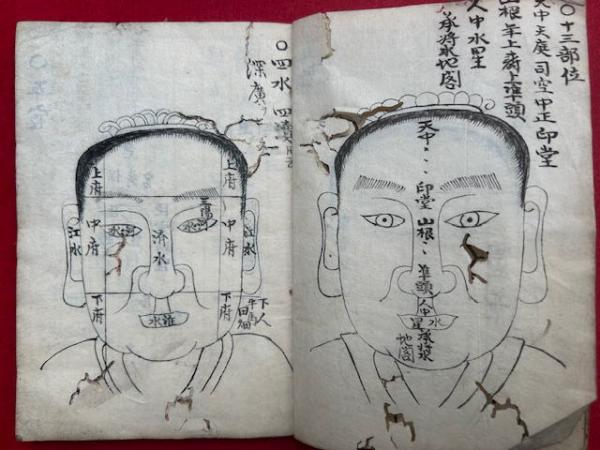 〇十三部位
天中天庭司空中正印堂
山根年上寿上準頭
人中水星
承漿地閣
天中、、印堂山根、、準頭
人中
水星
承漿
地閣
〇四水 四瀆
深廣
上府
上府
中府
中府
下府
下府
江水
江水
河水
河水
済水
淮水
下人
牛馬
田畑